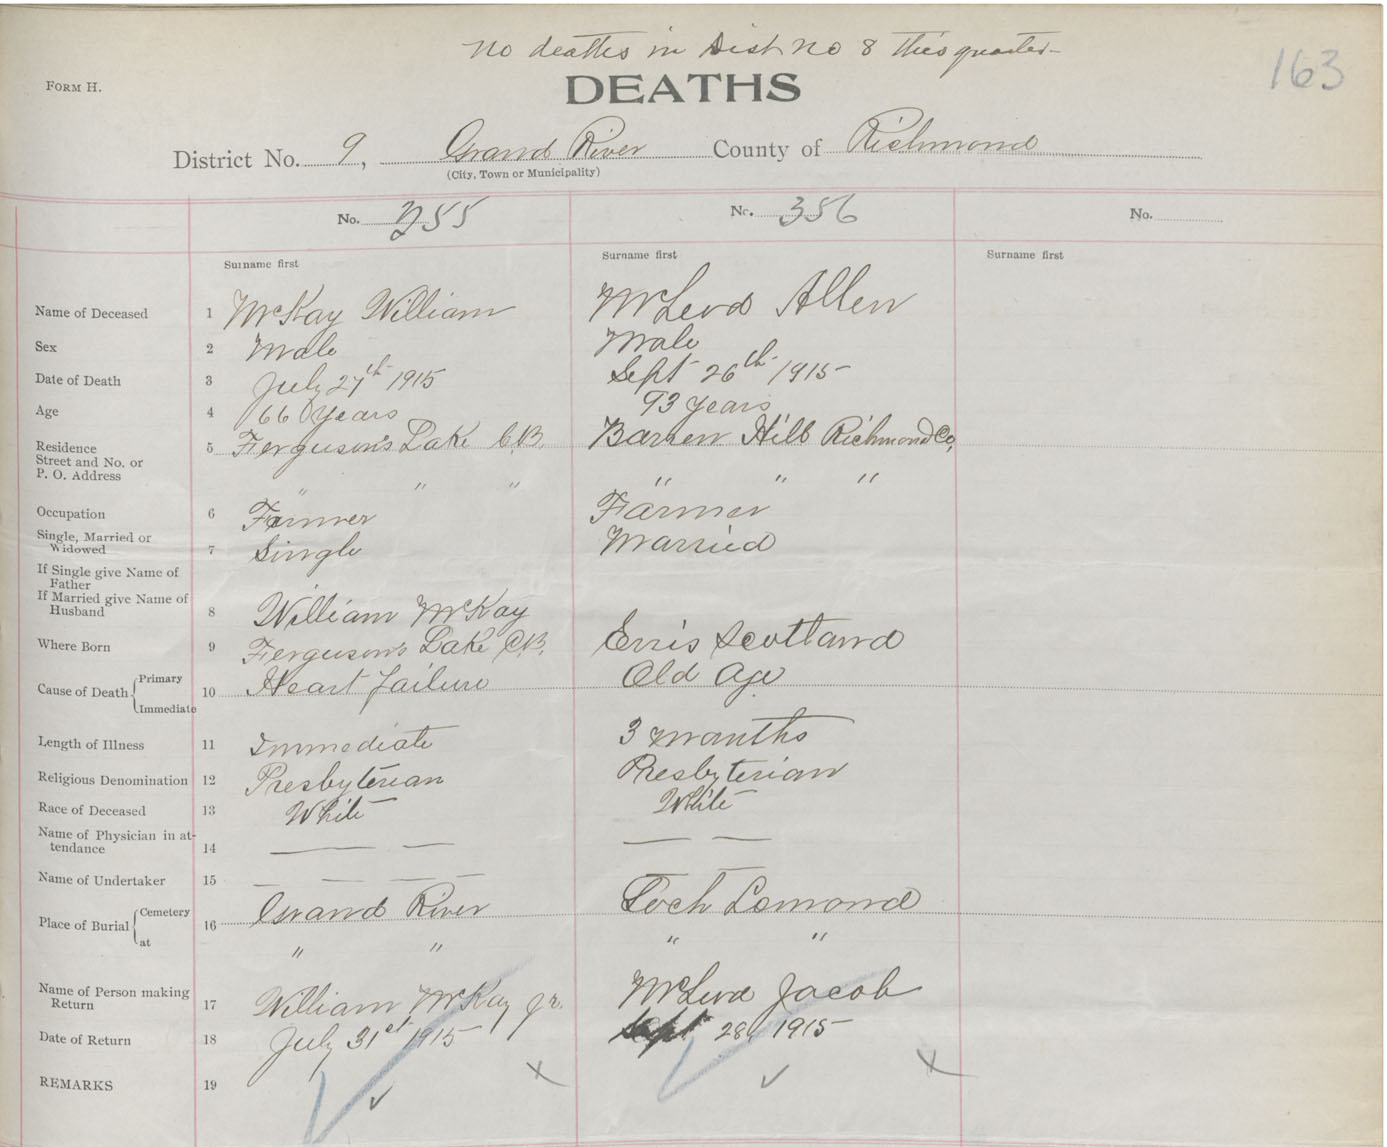 No deaths in Dist. No 8 this quarter-
163
FORM H.
DEATHS
District No. 9, Grand River County of Richmond
(City, Town or Municipality)
No. 355 No. 356 No.
Surname first Surname first Surname first
Name of Deceased 1 McKay William McLeod Allen
Sex 2 Male Male
Date of Death 3 July 27th 1915 Sept 26th 1915
Age 4 66 years 93 years
Residence
Street and No. or
P. O. Address 5 Ferguson's Lake C.B. Barren Hill Richmond Co,
" " " " " "
Occupation 6 Farmer Farmer
Single, Married or
Widowed 7 Single Married
If Single give Name of
Father
If Married give Name of
Husband 8 William McKay
Where Born 9 Ferguson's Lake C.B. Erris Scotland
Cause of Death { Primary
Immediate 10 Heart Failure Old Age
Length of Illness 11 Immediate 3 months
Religious Denomination 12 Presbyterian Presbyterian
Race of Deceased 13 White White
Name of Physician in at-
tendance 14 — — — —
Name of Undertaker 15 — — — — — —
Place of Burial { Cemetery
at 16 Grand River Loch Lomond
" " " "
Name of Person making
Return 17 William McKay Jr. McLeod Jacob
Date of Return 18 July 31st 1915 Sept 28, 1915
REMARKS 19